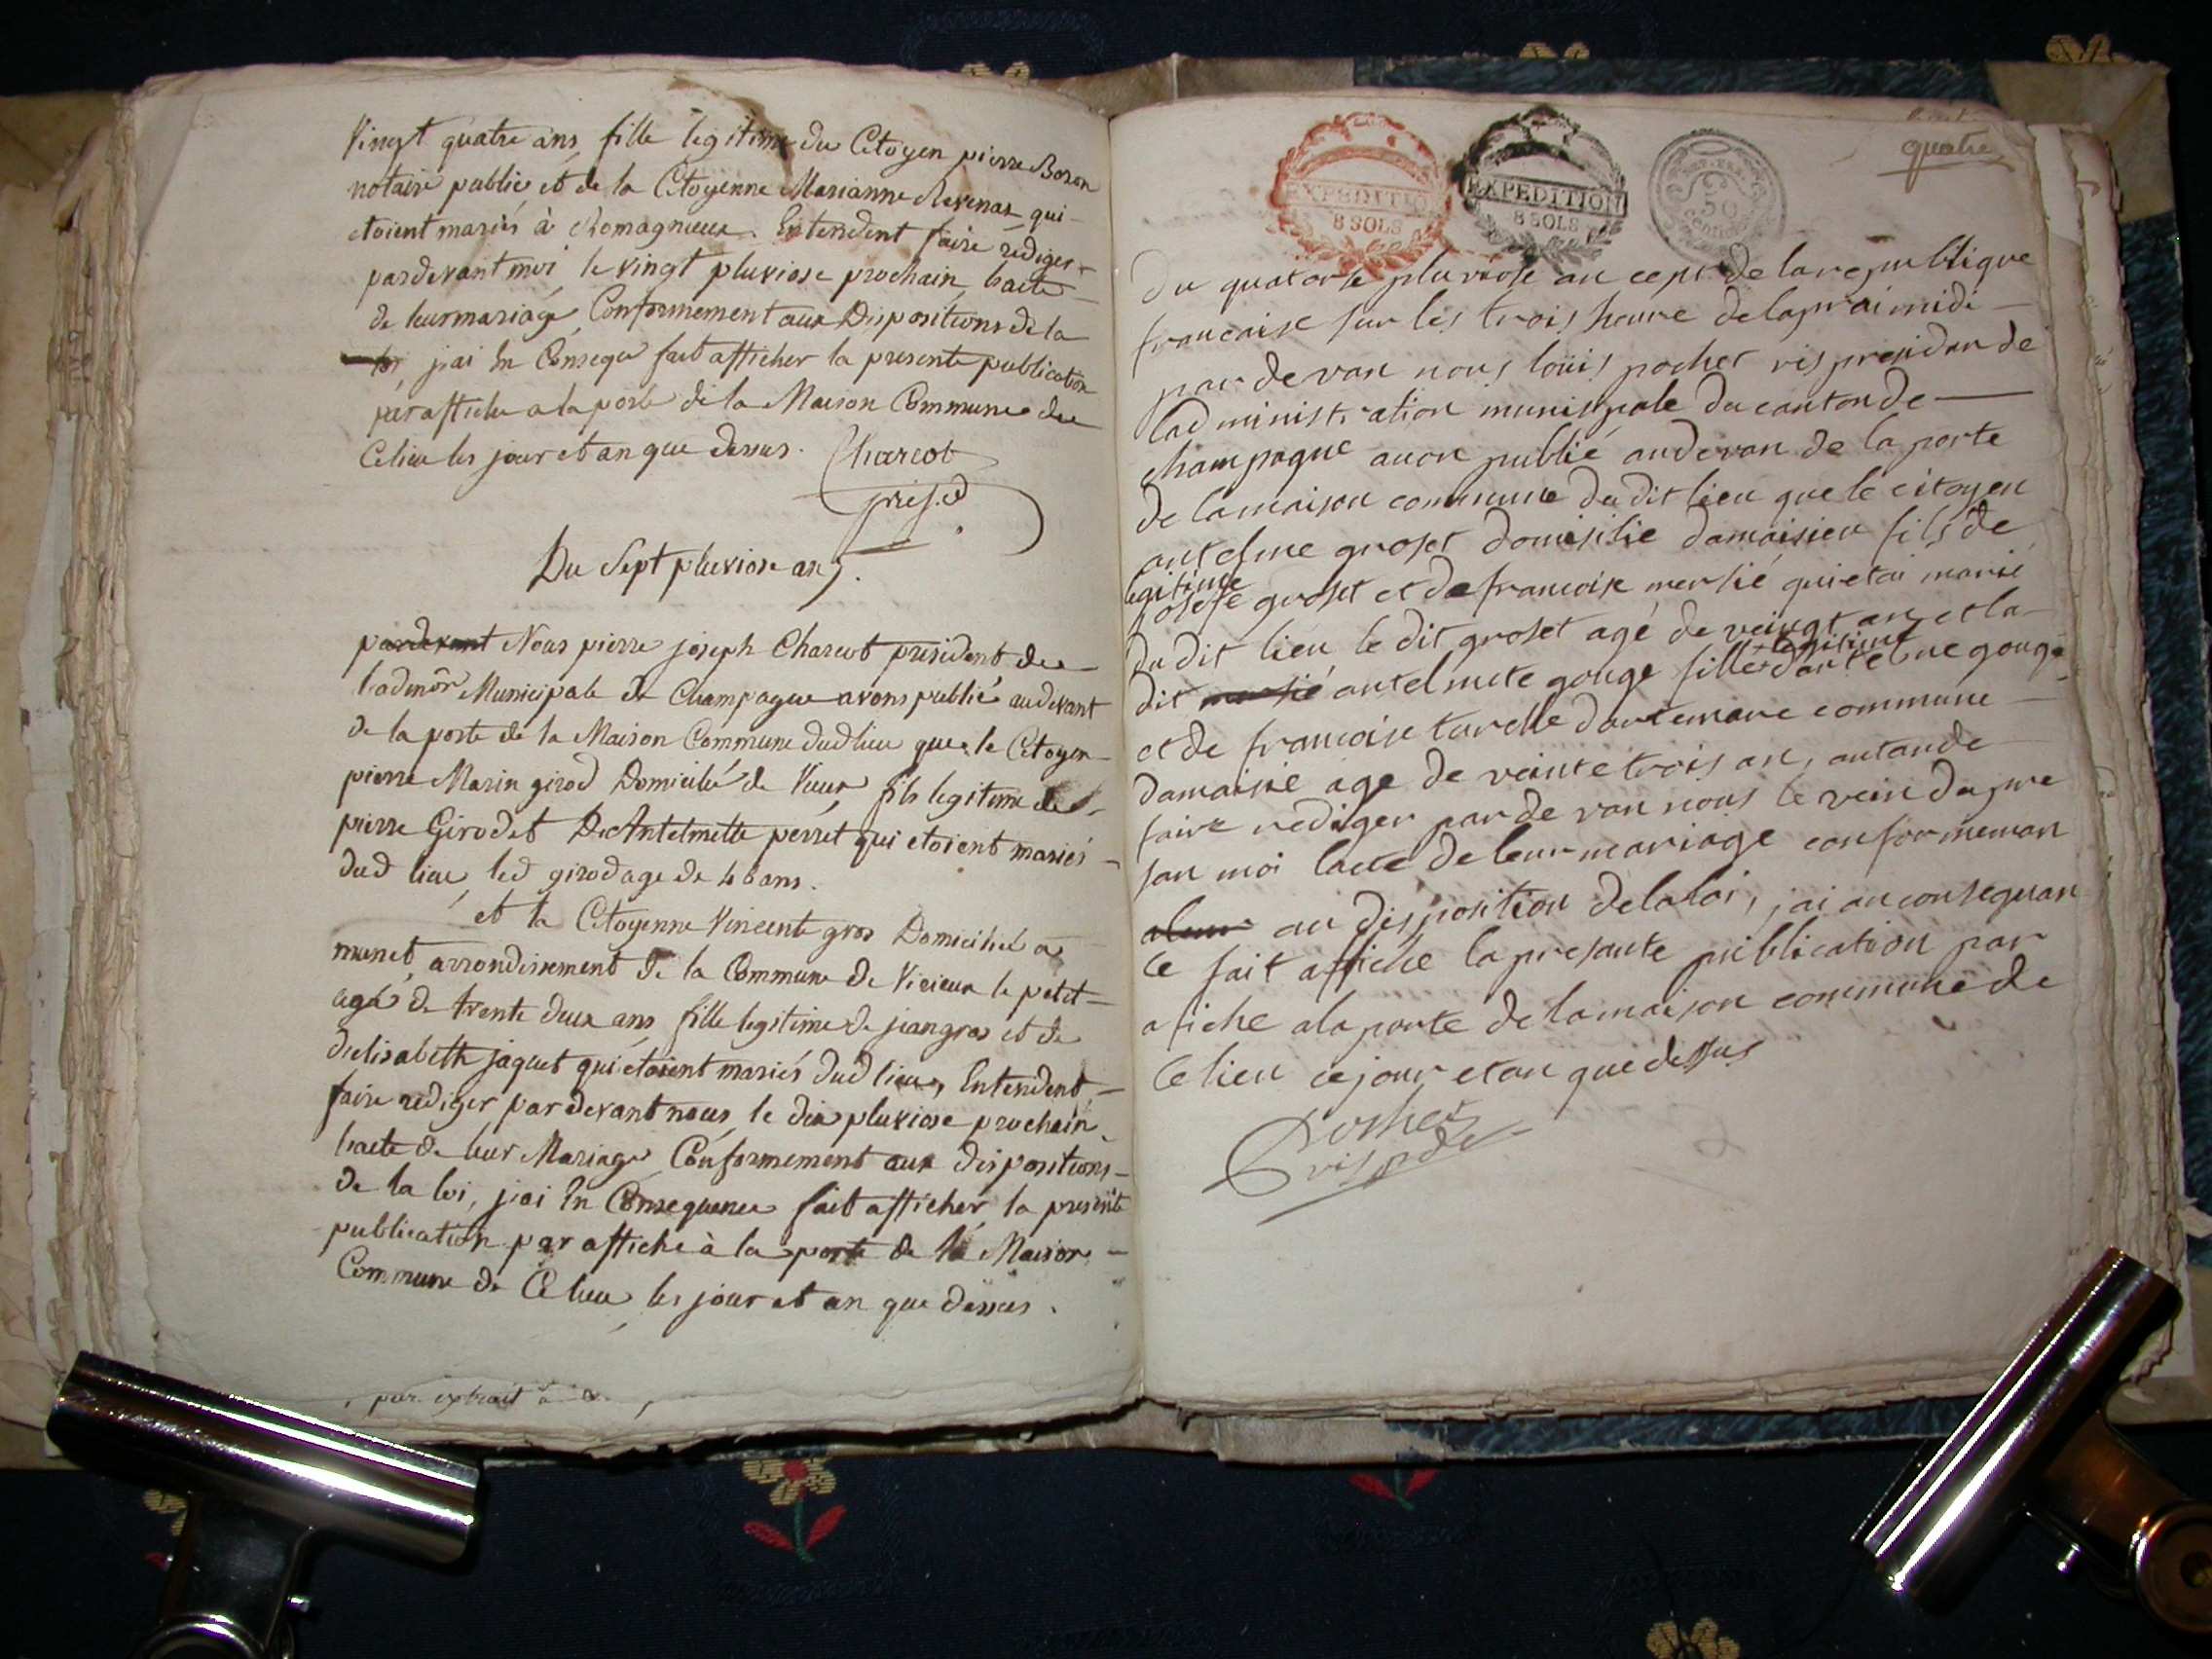 Vingt quatre ans, fille legitime du Citoyen pierre Boron
notaire public, et de la Citoyenne Marianne Revenas qui
etoient mariés à Romagnieux. Entendent faire rédiger
pardevant moi, le vingt pluviose prochain, l'acte
de leur mariage, Conformement aux Dispositions de la
loi, j'ai En Conseqce fait afficher la presente publication
par affiche a la porte de la Maison Commune de
Celieu les jour et an que dessus. Charcot
presid
Du Sept pluviose an 7.
pardevant Nous pierre joseph Charcot président de
l'admôn Municipale de Champagne avons publié audevant
de la porte de la Maison Commune dud lieu que le Citoyen
pierre Marin girod Domicilié de Vieux, fils legitime de
pierre Girod et De Antelmette perret qui etoient mariés
dud lieu, led girod age de 46 ans.
et la Citoyenne Vincente gros Domicilié a
munet, arrondissement de la Commune de Virieux le petit
agé de trente deux ans fille legitime de jean gros et de
d'elisabeth jaquet qui étoient mariés dud lieu, Entendent
faire rediger par devant nous, le dix pluviose prochain,
l'acte de leur Mariage Conformement aux dispositions
de la loi, j'ai En Consequence fait afficher la presente
publication par affiche à la porte de la Maison
Commune de Ce lieu, les jour et an que dessus.
par extrait
quatre
EXPEDITION
8 SOLS
EXPEDITION
8 SOLS
50
centi
Du quatorse pluviose an cept de la republique
francaise sur les trois heure de laprai midi
par devan nous louis pochet vis presidan de
lad ministration munispale du canton de
champagne avon publié audevan de la porte
de la maison commune du dit lieu que le citoyen
antelme groset domisilie damaisieu fils de
legitime
josefe groset et de francoise mersié qui etai marié
du dit lieu le dit groset agé de veingt an et la
legitime
dit mersié antelmete gouge fille d'antelme gouge
et de francoise turelle d'artemare commune
damaisie age de veinte trois an, antande
faire rediger par de van nous le vein du jure
san moi lacte de leur mariage conformeman
aleur au disposition de la loi, j'ai an consequan
ce fait affiche la presante publication par
afiche a la porte de la maison commune de
ce lieu ce jour et an que dessus
Poshet
vis pde